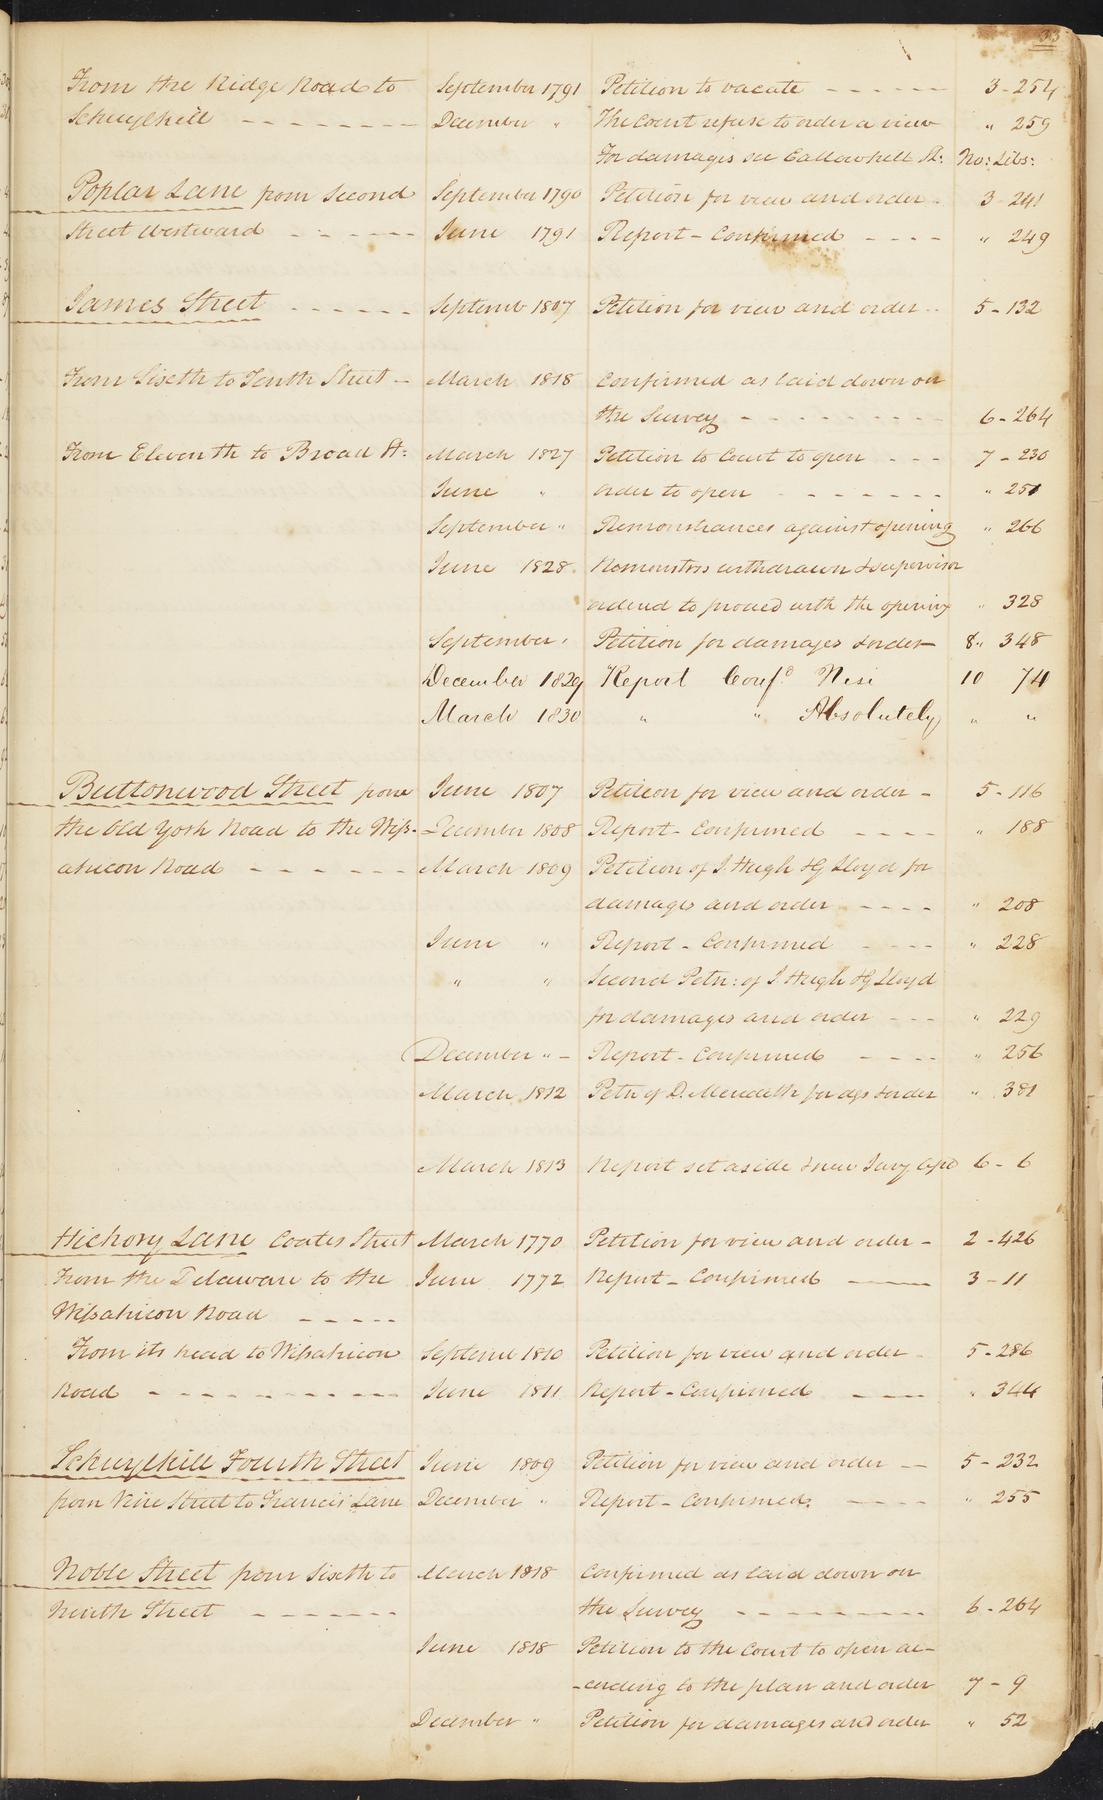 33
From the Ridge Road to September 1791 Petition to vacate - - - - - - 3-254
Schuylkill - - - - - - - - December " The Court refuse to order a view " 259
For damages see Callowhill St: No: Libs:
Poplar Lane from Second September 1790 Petition for view and order - 3 241
Street Westward - - - - - - June 1791 Report - Confirmed - - - - " 249
James Street - - - - - - Septemb 1807 Petition for view and order - - 5-132
From Sixth to Tenth Street - March 1818 Confirmed as laid down on
the Survey - - - - - - - - - 6-264
From Eleventh to Broad St: March 1827 Petition to Court to open - - - 7-230
June " order to open - - - - - - - " 251
September " Remonstrances against opening " 266
June 1828. Remonstrs withdrawn & supervisor
ordered to proceed with the opening " 328
September " Petition for damages & order 8 " 348
December 1829 Report Conf.d Nisi 10 74
March 1830 " " Absolutely " "
Buttonwood Street from June 1807 Petition for view and order - 5-116
the Old York Road to the Wiss- December 1808 Report - Confirmed - - - - " 188
ahicon Road - - - - - - March 1809 Petition of J. Hugh Hy Lloyd for
damages and order - - - - " 208
June " Report - Confirmed - - - - " 228
" " Second Petn: of J Hugh Hy Lloyd
for damages and order - - - " 229
December " - Report - Confirmed - - - - " 256
March 1812 Petn of D. Meredith for dgs & order " 381
March 1813 Report set aside & new Jury apd 6-6
Hickory Lane Coates Street March 1770 Petition for view and order - 2-426
From the Delaware to the June 1772 Report - Confirmed - - - 3-11
Wissahicon Road - - - - -
From its head to Wissahicon Septemb 1810 Petition for view and order - 5-286
Road - - - - - - - - - - - June 1811 Report - Confirmed - - - - " 344
Schuylkill Fourth Street June 1809 Petition for view and order - - 5-232
from Vine Street to Francis' Lane December " Report - Confirmed. - - - - " 255
Noble Street from Sixth to March 1818 Confirmed as laid down on
Ninth Street - - - - - - - the Survey - - - - - - - - - 6-264
June 1818 Petition to the Court to open ac-
-cording to the plan and order 7-9
December " Petition for damages and order " 52